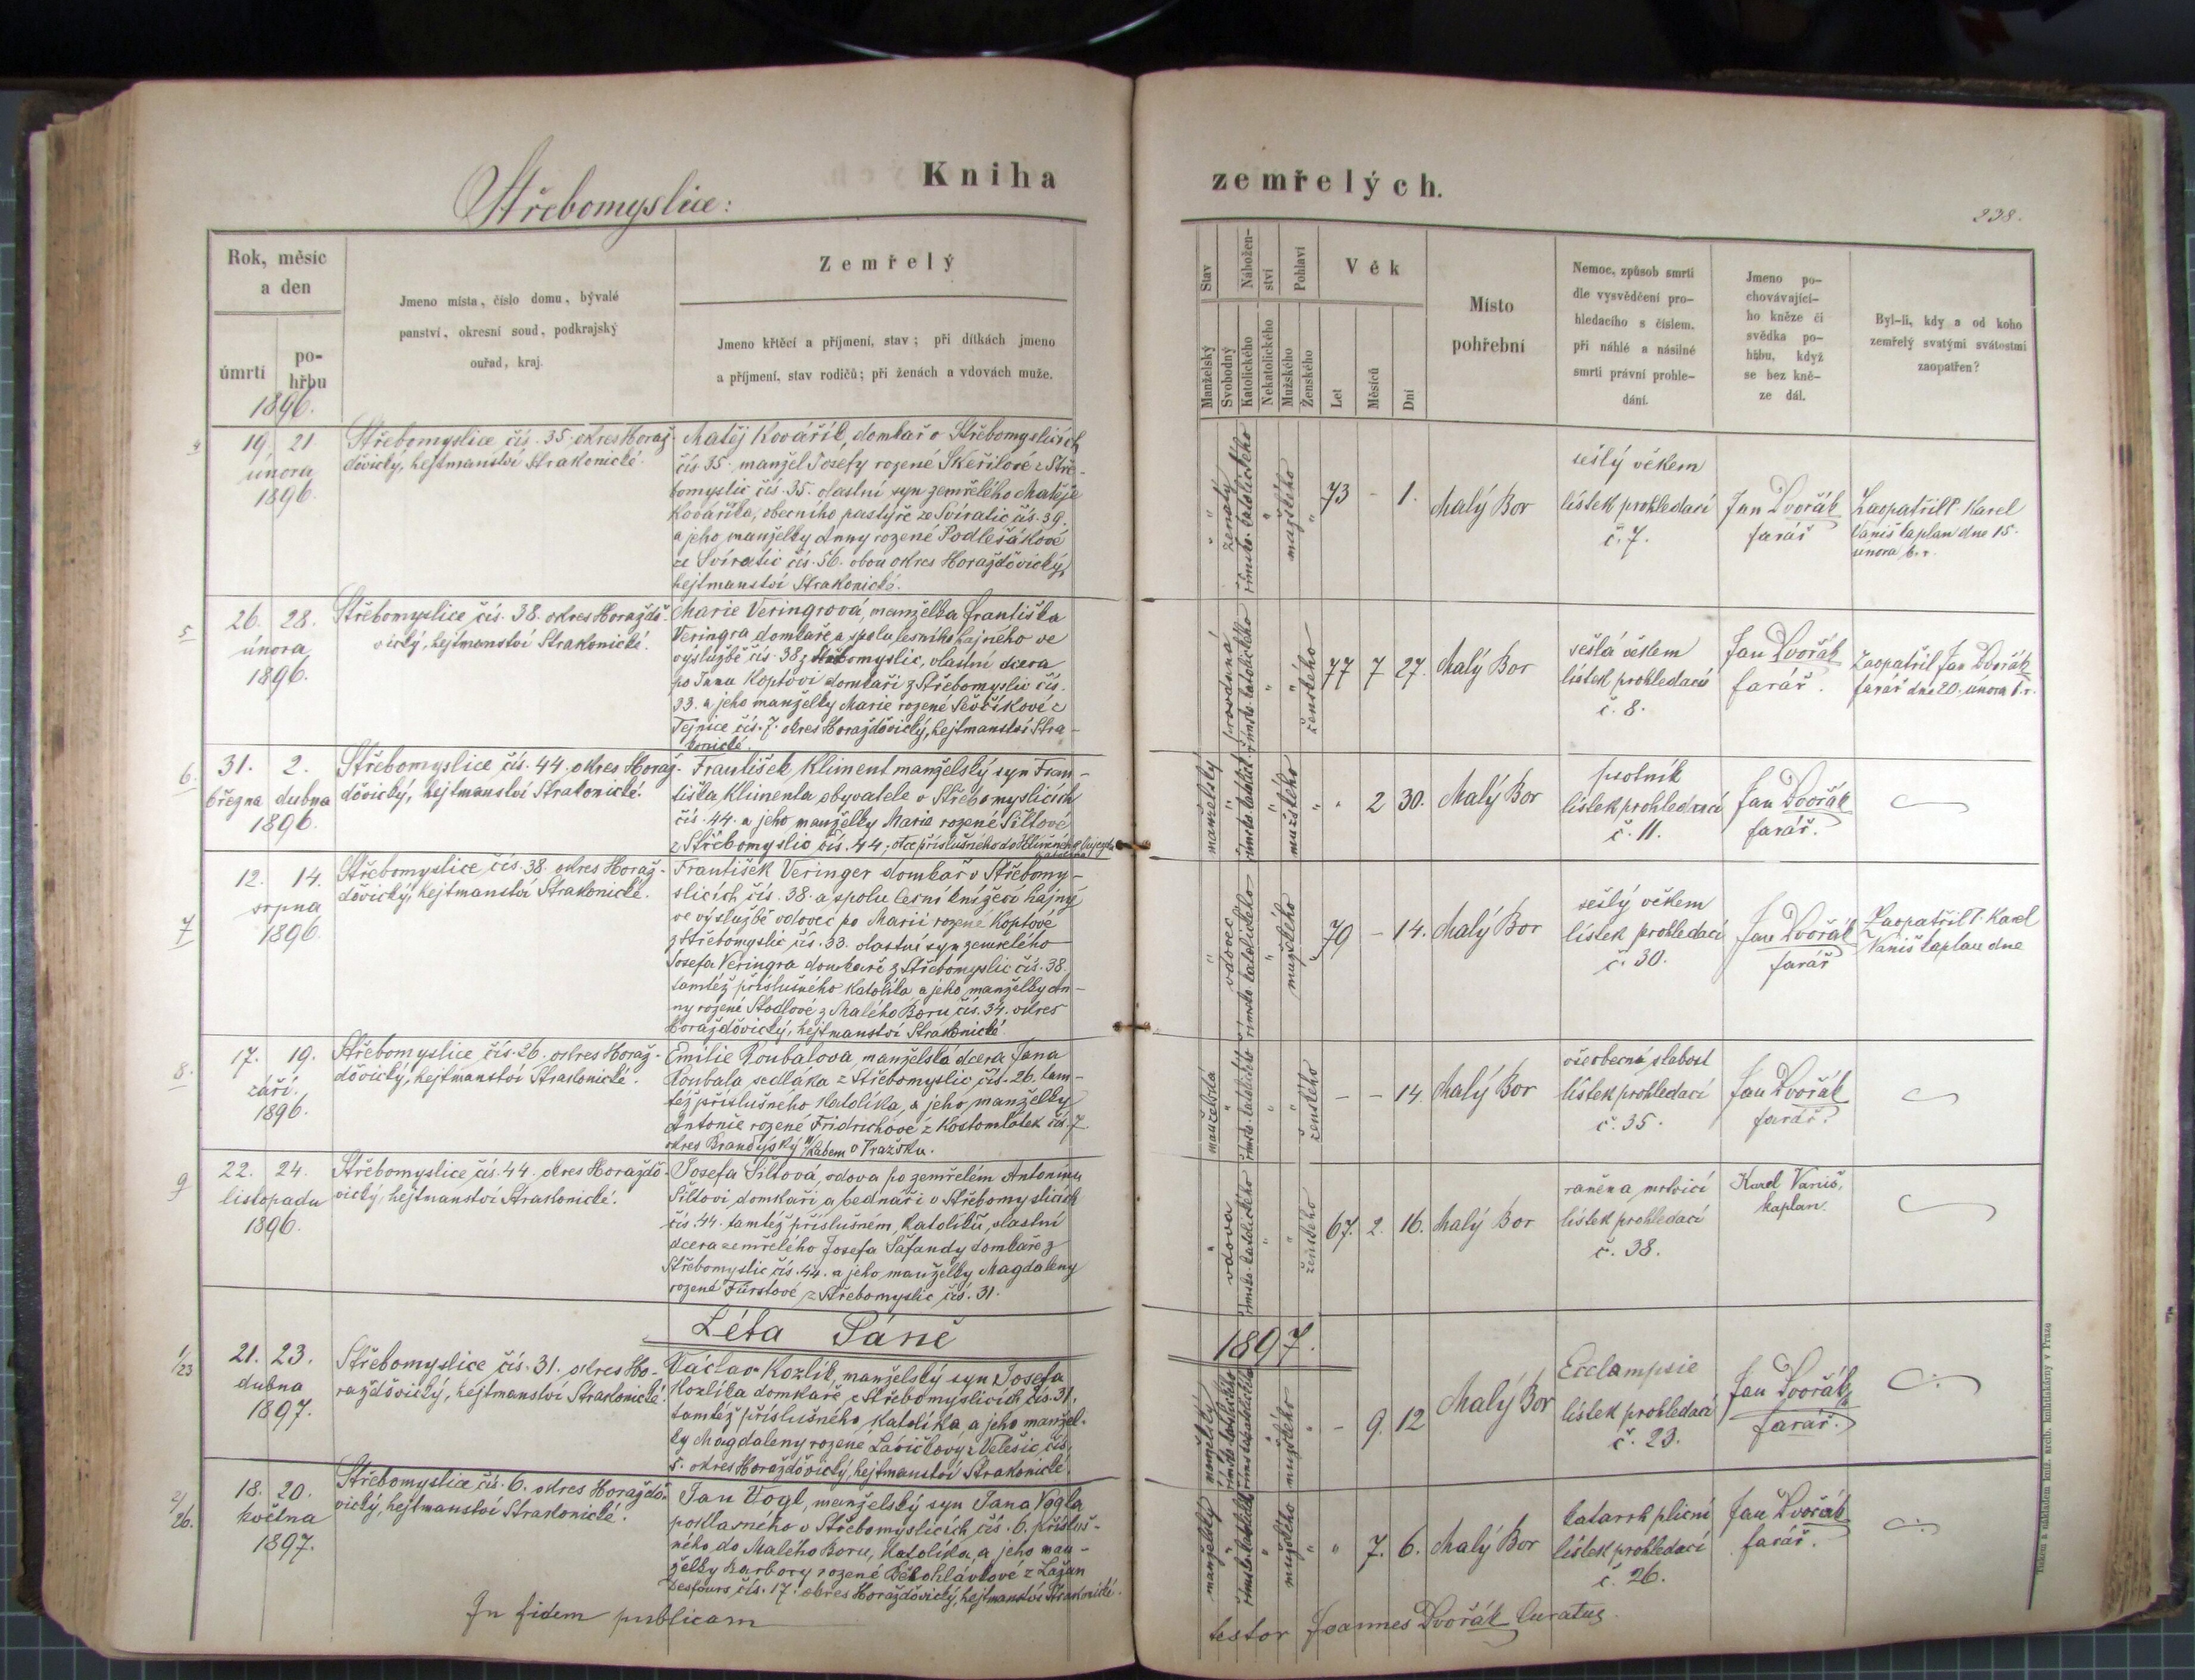 Střebomyslice:
Kniha
zemřelých.
238.
Rok, měsíc
a den
úmrtí
po-
hřbu
1896.
Jmeno místa, číslo domu, bývalé
panství, okresní soud, podkrajský
ouřad, kraj.
Zemřelý
Jmeno křtěcí a příjmení, stav; při dítkách jmeno
a příjmení, stav rodičů; při ženách a vdovách muže.
Stav
Nábožen-
ství
Pohlaví
Věk
Manželský
Svobodný
Katolického
Nekatolického
Mužského
Ženského
Let
Měsíců
Dní
Místo
pohřební
Nemoc, způsob smrti
dle vysvědčení pro-
hledacího s číslem,
při náhlé a násilné
smrti právní prohle-
dání.
Jmeno po-
chovávající-
ho kněze či
svědka po-
hřbu, když
se bez kně-
ze dál.
Byl-li, kdy a od koho
zemřelý svatými svátostmi
zaopatřen?
4
19 21
února
1896.
Střebomyslice čís. 35. okres Horaž-
dovický, hejtmanství Strakonické.
Matěj Kovářík, domkař v Střebomyslicích
čís 35. manžel Josefy rozené Skeřilové z Stře-
bomyslic čís. 35. vlastní syn zemřelého Matěje
Kováříka, obecního pastýře ze Svíratic čís. 39.
a jeho manželky Anny rozené Podlešákové
ze Svíratic čís. 56. obou okres Horažďovický,
hejtmanství Strakonické.
" ženatý
římsko-katolického
"
mužského
"
73 - 1.
Malý Bor
sešlý věkem
lístek prohledací
č. 7.
Jan Dvořák
farář
Zaopatřil P. Karel
Vaniš kaplan dne 15.
února t. r.
5
26. 28.
února
1896.
Střebomyslice čís. 38. okres Horaždo-
vický, hejtmanství Strakonické.
Marie Veringrová, manželka Františka
Veringra domkaře a spolu lesního hajného ve
výslužbě čís. 38 z Střebomyslic, vlastní dcera
po Janu Koptovi domkaři z Střebomyslic čís.
33. a jeho manželky Marie rozené Ševčíkové z
Tejnice čís. 7. okres Horažďovický, hejtmanství Stra-
konické.
provdaná
římsko-katolického
"
"
ženského
77 7 27.
Malý Bor
sešlá věkem
lístek prohledací
č. 8.
Jan Dvořák
farář.
Zaopatřil Jan Dvořák
farář dne 20. února t. r.
6.
31. 2.
března dubna
1896.
Střebomyslice čís. 44. okres Horaž-
dovický, hejtmanství Strakonické.
František Kliment manželský syn Fran-
tiška Klimenta obyvatele v Střebomyslicích
čís. 44. a jeho manželky Marie rozené Šiltové
z Střebomyslic čís. 44; otce příslušného do
manželský
"
"
mužského
" " 2 30.
Malý Bor
psotník
lístek prohledací
č. 11.
Jan Dvořák
farář.
7
12. 14.
srpna
1896.
Střebomyslice čís. 38. okres Horaž-
dovický, hejtmanství Strakonické.
František Veringer domkař v Střebomy-
slicích čís. 38. a spolu lesní knížecí hajný
ve výslužbě vdovec po Marii rozené Koptové
z Střebomyslic čís. 33. vlastní syn zemřelého
Josefa Veringra domkaře z Střebomyslic čís. 38.
tamtéž příslušného katolíka a jeho manželky An-
ny rozené Stodlové z Malého Boru čís. 34. okres
Horažďovický, hejtmanství Strakonické.
"
vdovec
římsko-katolického
"
mužského
"
79 - 14.
Malý Bor
sešlý věkem
lístek prohledací
č. 30.
Jan Dvořák
farář
Zaopatřil P. Karel
Vaniš kaplan dne
8.
17. 19.
září.
1896.
Střebomyslice čís. 26. okres Horaž-
dovický, hejtmanství Strakonické.
Emilie Koubalova, manželská dcera Jana
Koubala sedláka z Střebomyslic, čís. 26. tam-
též příslušneho katolíka, a jeho manželky
Antonie rozené Fridrichove z Kostomlátek čís. 7.
okres Brandýský n/Labem v Pražsku.
manželská
"
římsko-katolického
"
"
ženského
- - 14
Malý Bor
všeobecná slabost
lístek prohledací
č. 35.
Jan Dvořák
farář.
9
22. 24.
listopadu
1896.
Střebomyslice čís. 44. okres Horaždo-
vický, hejtmanství Strakonické.
Josefa Šiltová, vdova po zemřelém Antonínu
Šiltovi domkaři a bednáři v Střebomyslicích
čís. 44. tamtéž příslušném, katolíku, vlastní
dcera zemřelého Josefa Šafandy domkaře z
Střebomyslic čís. 44. a jeho manželky Magdaleny
rozené Fürstové z Střebomyslic čís. 31.
"
vdova
římsko-katolického
"
"
ženského
67. 2. 16.
Malý Bor
raněna mrtvicí
lístek prohledací
č. 38.
Karel Vaniš,
kaplan.
Léta Páně
1897.
1/23
21. 23.
dubna
1897.
Střebomyslice čís. 31. okres Ho-
raždovický, hejtmanství Strakonické.
Václav Kozlík, manželský syn Josefa
Kozlíka domkaře v Střebomyslicích čís. 31.
tamtéž příslušného, katolíka a jeho manžel-
ky Magdaleny rozené Lavičkovy z Velešic, čís.
5. okres Horažďovický, hejtmanství Strakonické.
manželský
mužského
" - 9. 12
Malý Bor
Ecclampsie
lístek prohledací
č. 23.
Jan Dvořák
farář.
2/26.
18. 20.
května
1897.
Střebomyslice čís. 6. okres Horaždo-
vický, hejtmanství Strakonické.
Jan Vogl, manželský syn Jana Vogla
poklasného v Střebomyslicích čís. 6. přísluš-
ného do Malého Boru, katolíka, a jeho man-
želky Barbory rozené Bělohlávkové z Lažan
Desfours čís. 17. okres Horažďovický, hejtmanství Strakonické.
manželský
"
"
mužského
" " 7. 6.
Malý Bor
katarrh plicní
lístek prohledací
č. 26.
Jan Dvořák
farář.
In fidem publicam
testor Joannes Dvořák Curatus.
Tiskem a nákladem kníž. arcib. knihtiskárny v Praze